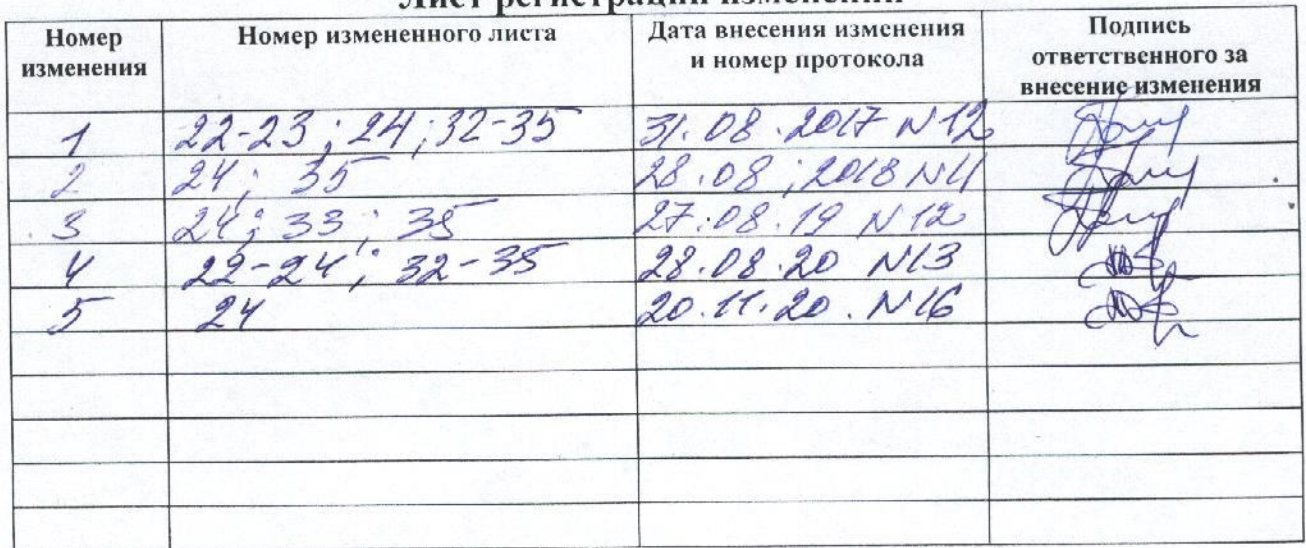 Лист регистрации изменений
Номер изменения Номер измененного листа Дата внесения изменения и номер протокола Подпись ответственного за внесение изменения
1 22-23; 24; 32-35 31.08.2017 N12
2 24; 35 28.08; 2018 N11
3 24; 33; 35 27.08.19 N12
4 22-24; 32-35 28.08.20 N13
5 24 20.11.20. N16